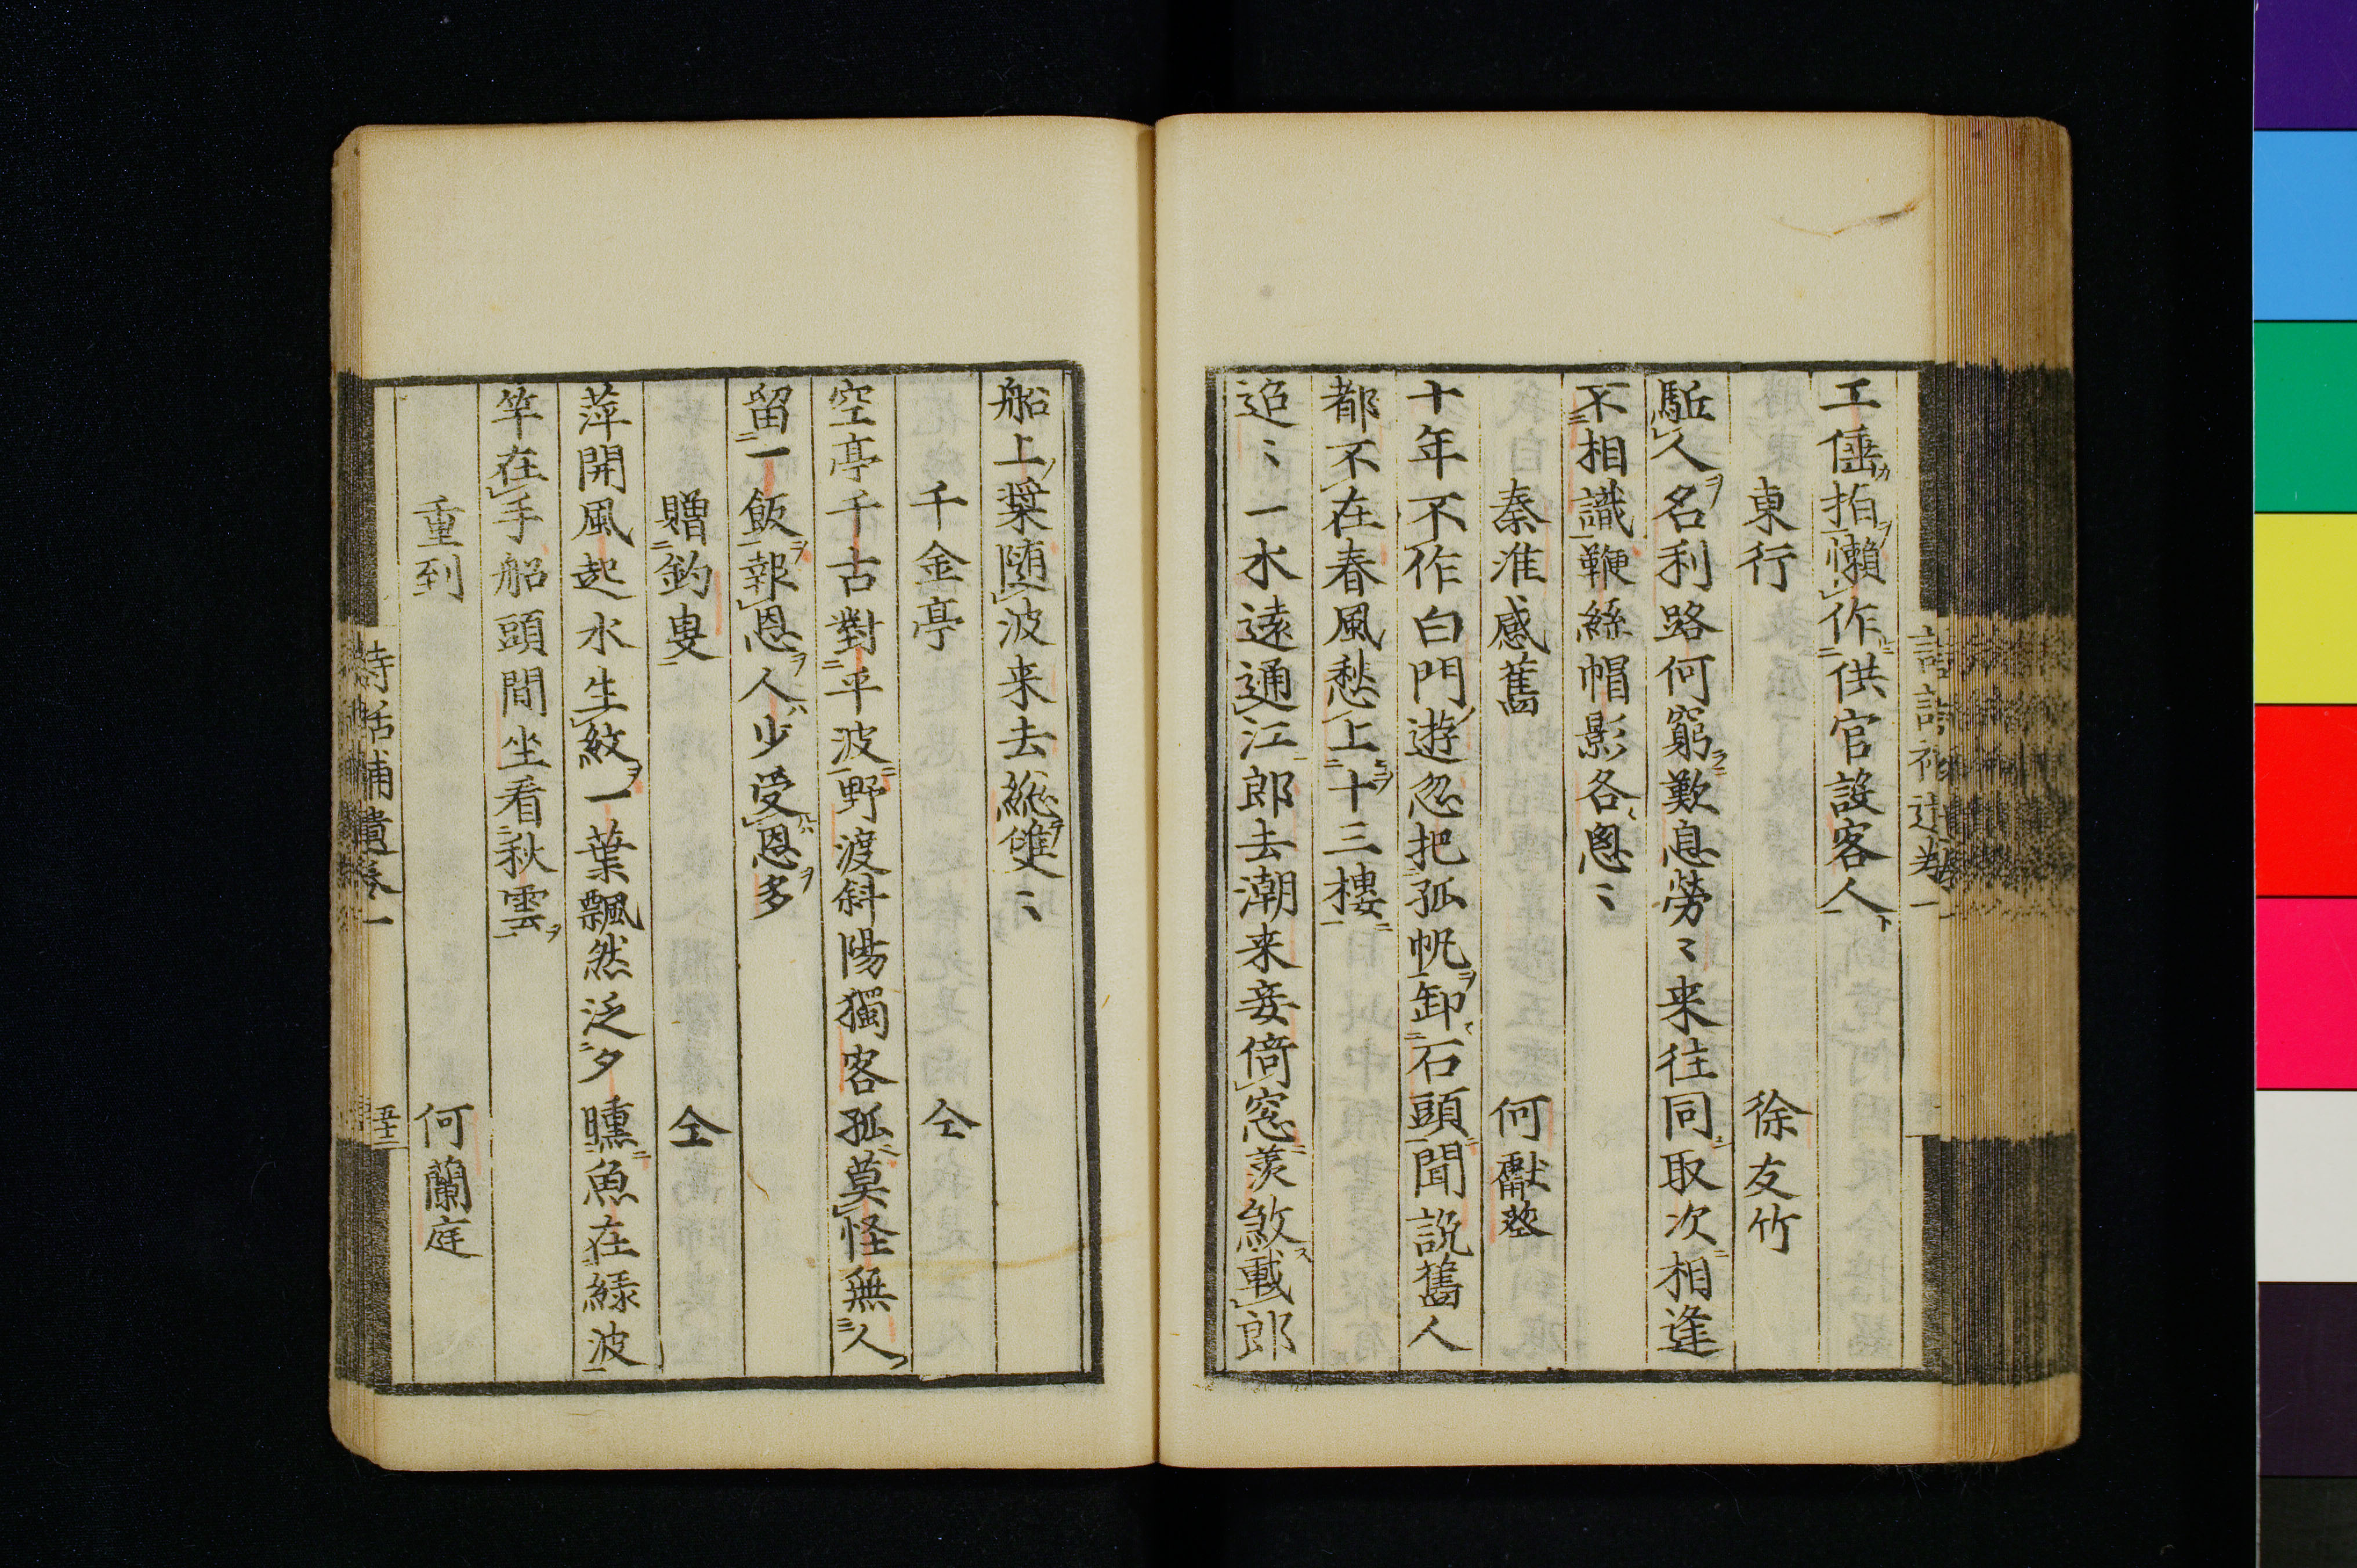 工倕拍懶作供官設客人
東行 徐友竹
駈人名利路何窮歎息勞〻来往同取次相逢
不相識鞭絲帽影各怱〻
秦淮感舊 何獻葵
十年不作白門遊忽把孤帆卸石頭聞説舊人
都不在春風愁上十三樓
追〻一水遠通江郎去潮来妾倚窓羨煞載郎
船上槳随波来去総雙〻
千金亭 仝
空亭千古對平波野渡斜陽獨客孤莫怪無人
留一飯報恩人少受恩多
贈釣叟 仝
萍開風起水生紋一葉飄然泛夕曛魚在緑波
竿在手船頭間坐看秋雲
重到 何蘭庭
詩話補遺卷一
五十二